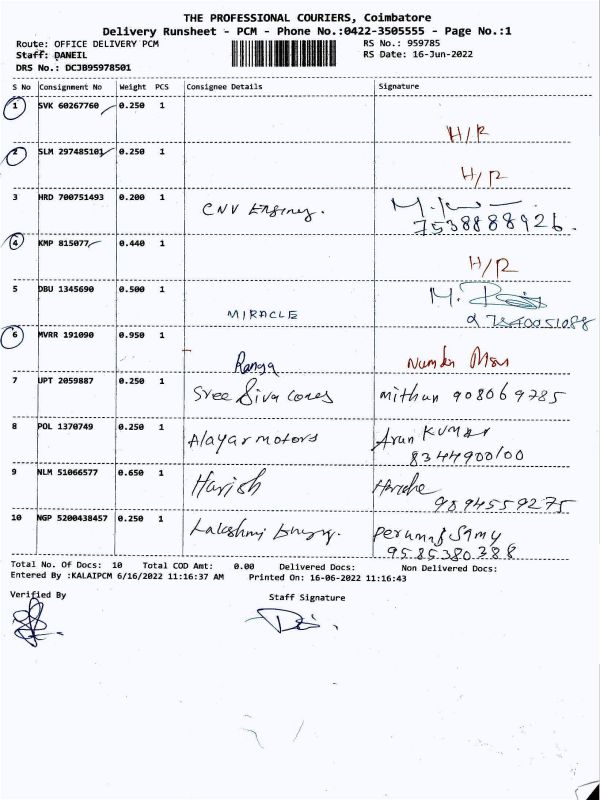 THE PROFESSIONAL COURIERS, Coimbatore
Delivery Runsheet - PCM - Phone No.:0422-3505555 - Page No.:1
Route: OFFICE DELIVERY PCM RS No.: 959785
Staff: DANEIL RS Date: 16-Jun-2022
DRS No.: DCJB95978501
S No Consignment No Weight PCS Consignee Details Signature
1 SVK 60267760 0.250 1
H/R
2 SLM 297485101 0.250 1
H/R
3 HRD 700751493 0.200 1
CNV
7538888926.
4 KMP 815077 0.440 1
H/R
5 DBU 1345690 0.500 1
MIRACLE
6 MVRR 191090 0.950 1
Ranga
7 UPT 2059887 0.250 1
Sree Siva mithun 908069785
8 POL 1370749 0.250 1
Alayar motors Arun KUMAR
8344900100
9 NLM 51066577 0.650 1
Harish
9894559275
10 NGP 5200438457 0.250 1
Lakshmi Perumal Samy
9585380388
Total No. Of Docs: 10 Total COD Amt: 0.00 Delivered Docs: Non Delivered Docs:
Entered By :KALAIPCM 6/16/2022 11:16:37 AM Printed On: 16-06-2022 11:16:43
Verified By Staff Signature